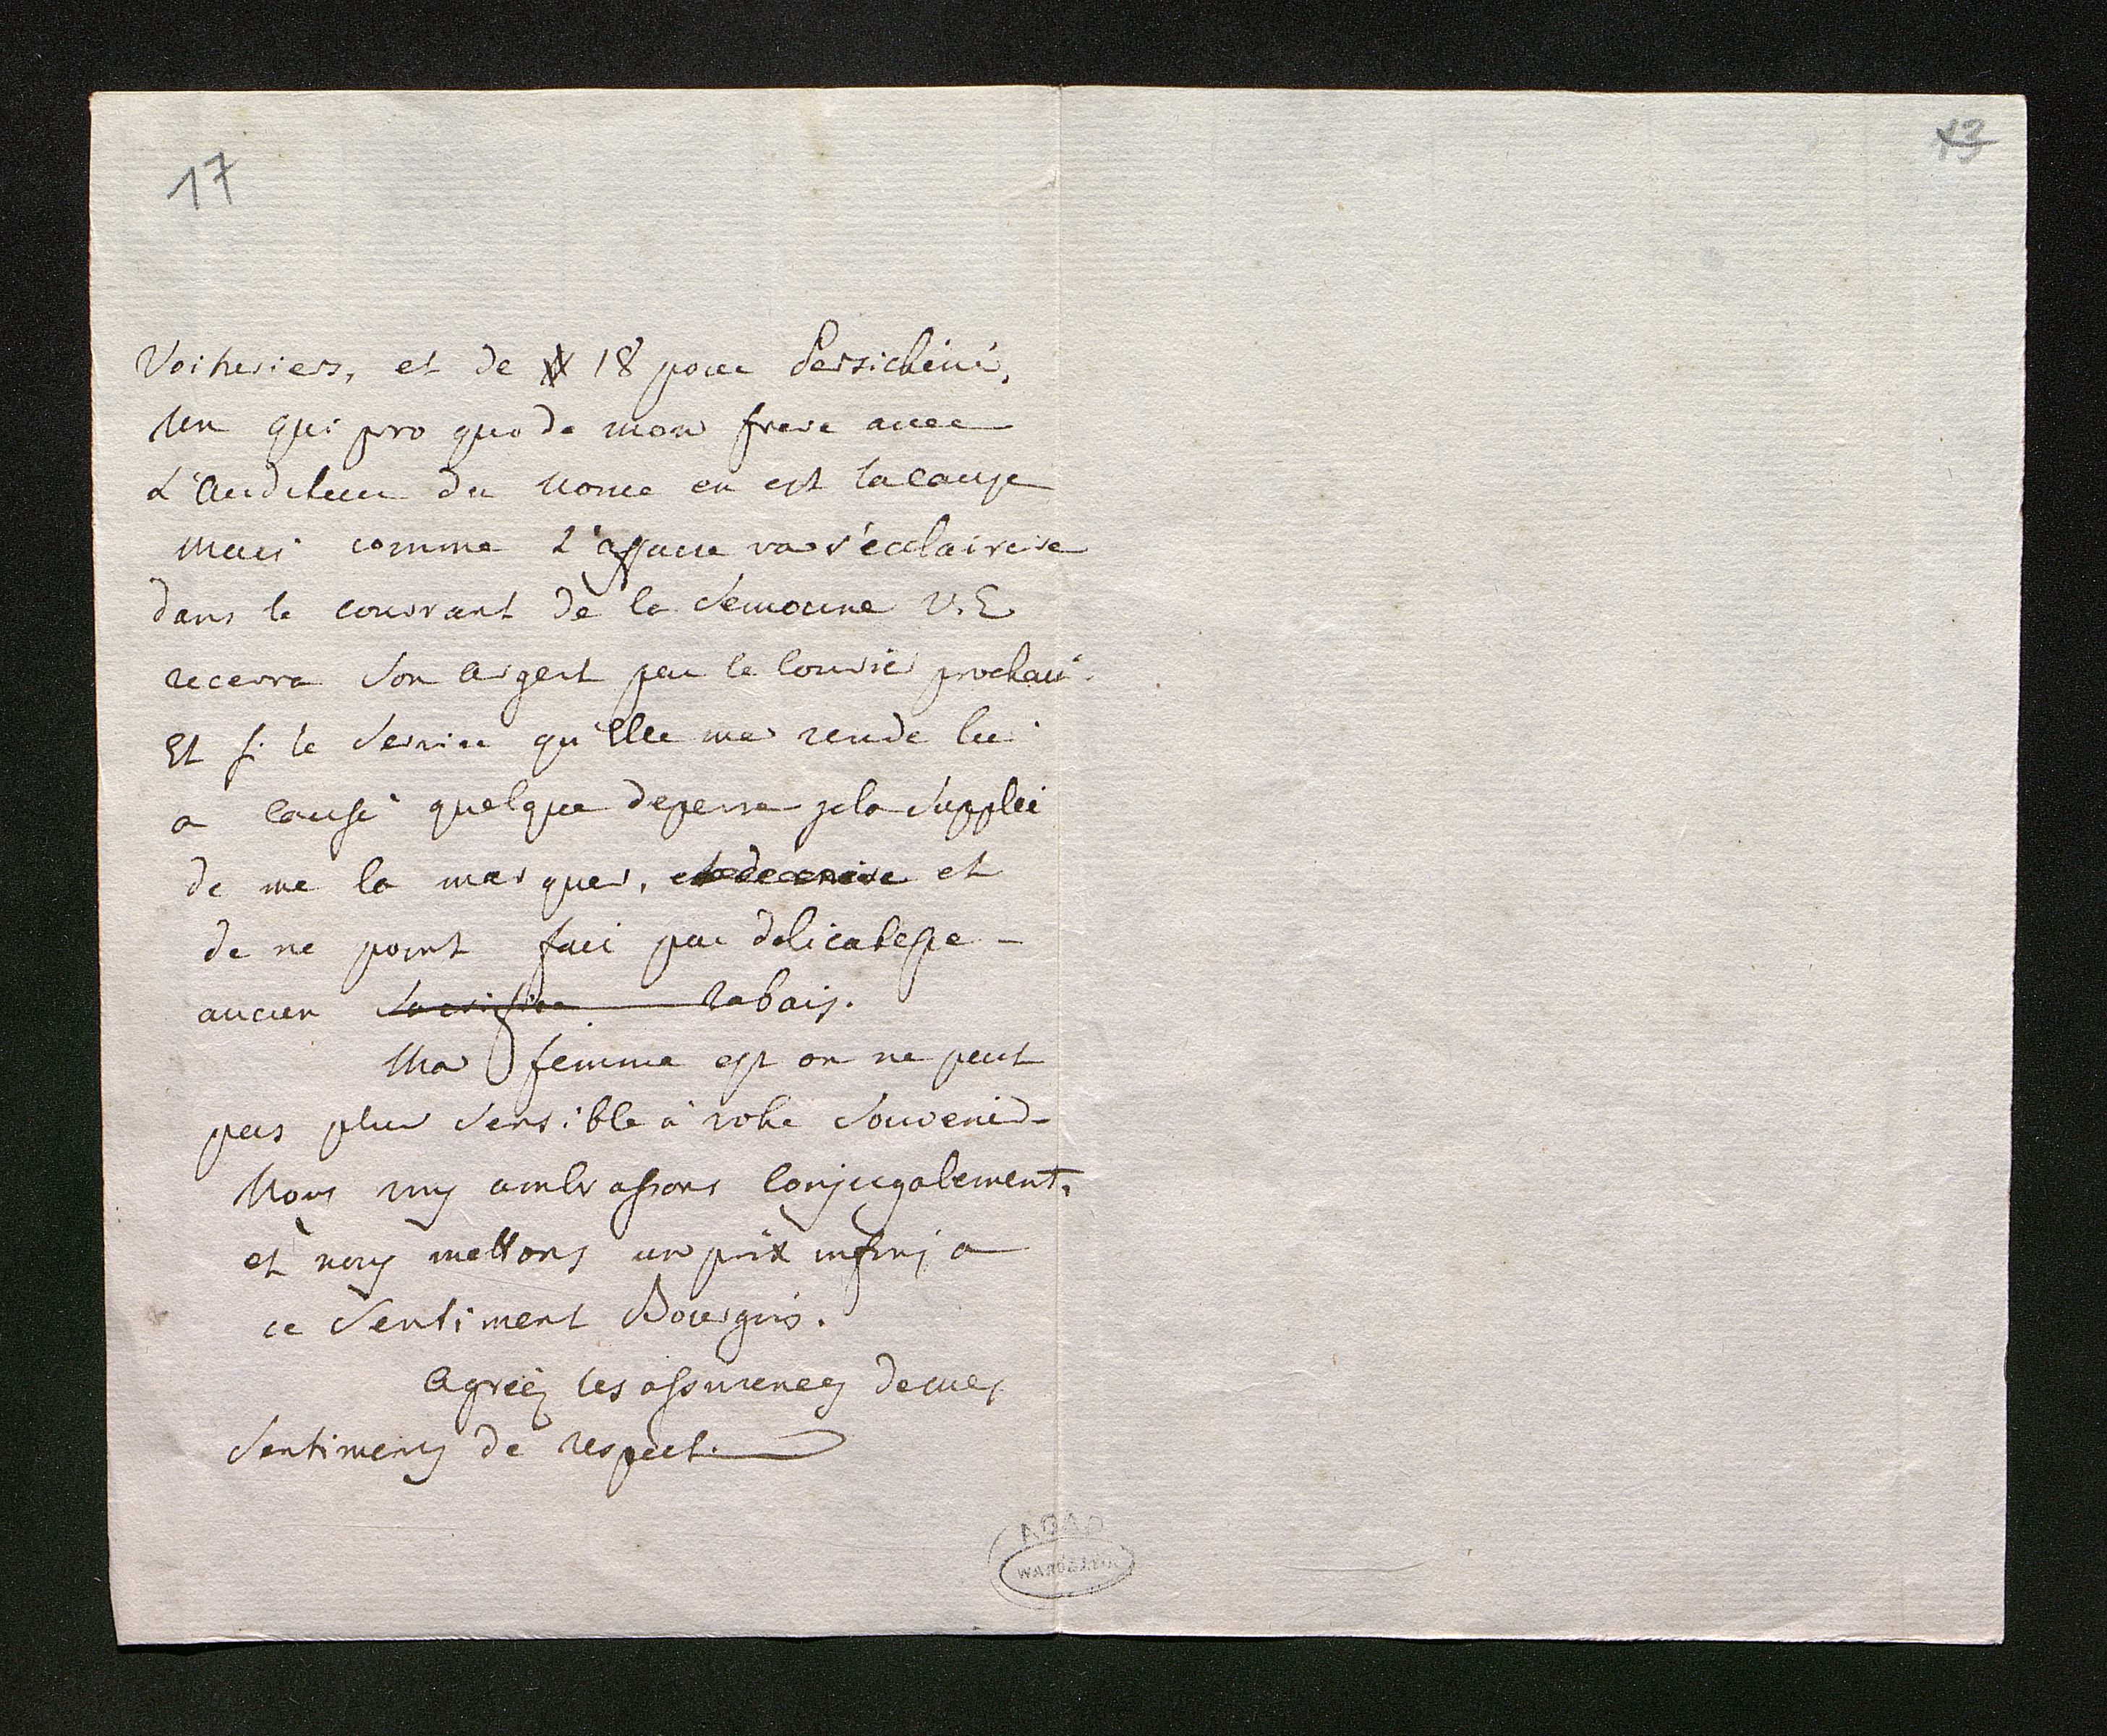 17
13
Voituriers, et de 18 pour Persichini,
Un qui pro quo de mon frere avec
L'Auditeur du nonce en est la cause
Mais comme l'affaire va s'ecclaircire
dans le courrant de la Semaine V. E
recevra Son Argent par le Courier prochain.
Et si le Service qu'Elle me rende lui
a Causé quelque depense je la Supplie
de me la marquer, et
de ne point faire par delicatesse -
aucun Sacrifice rabais.
Ma femme est on ne peut
pas plus Sensible à votre Souvenir -
Nous nous embrassons Conjugalement,
et nous mettons un prix infini a
ce Sentiment Bourgois.
Agréez les assurences de mes
Sentimens de respect.
AGAD
WARSZAWA